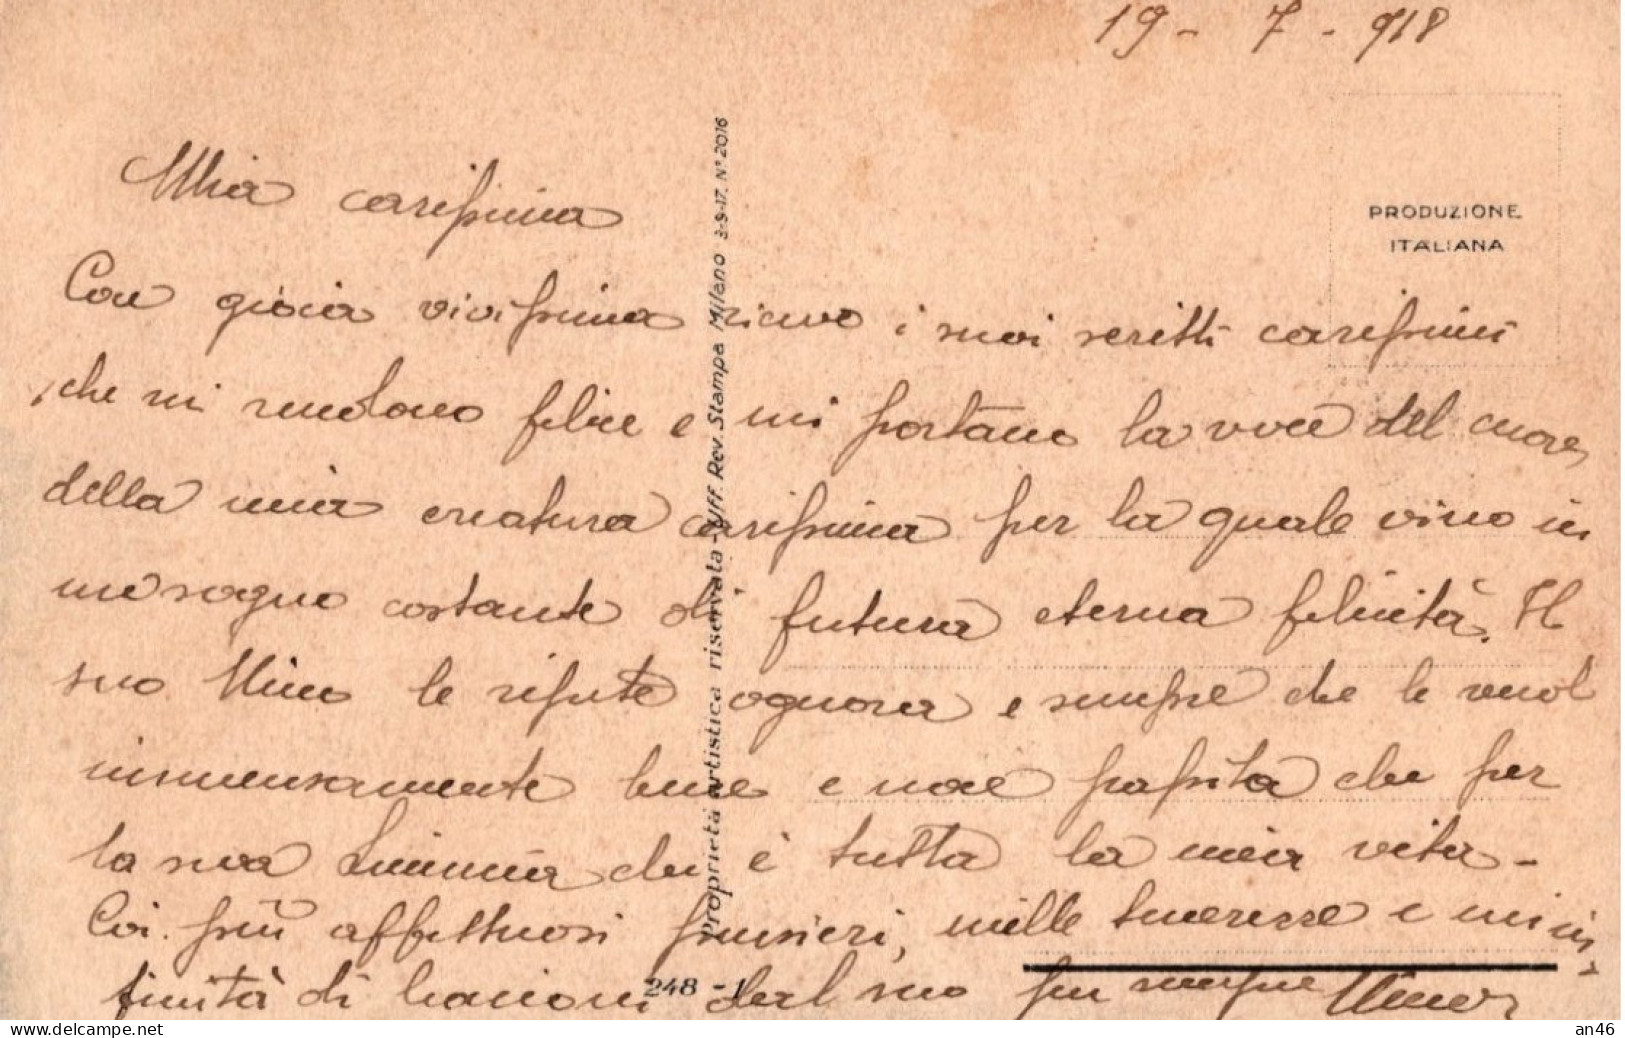 19 - 7 - 918
PRODUZIONE
ITALIANA
Mia carissima
Con gioia vivissima ricevo i suoi scritti carissimi
che mi rendono felice e mi portano la voce del cuore
della mia creatura carissima per la quale vivo in
un sogno costante di futura eterna felicità. Il
suo Nino le ripete ognora e sempre che le vuol
immensamente bene e non palpita che per
la sua che è tutta la mia vita -
Coi più affettuosi pensieri, mille tenerezze e un'in-
finità di bacioni dal suo per sempre Nino
Proprietà artistica riservata - Uff. Rev. Stampa Milano 3-9-17. N° 2016
248 - 1
www.delcampe.net
an46